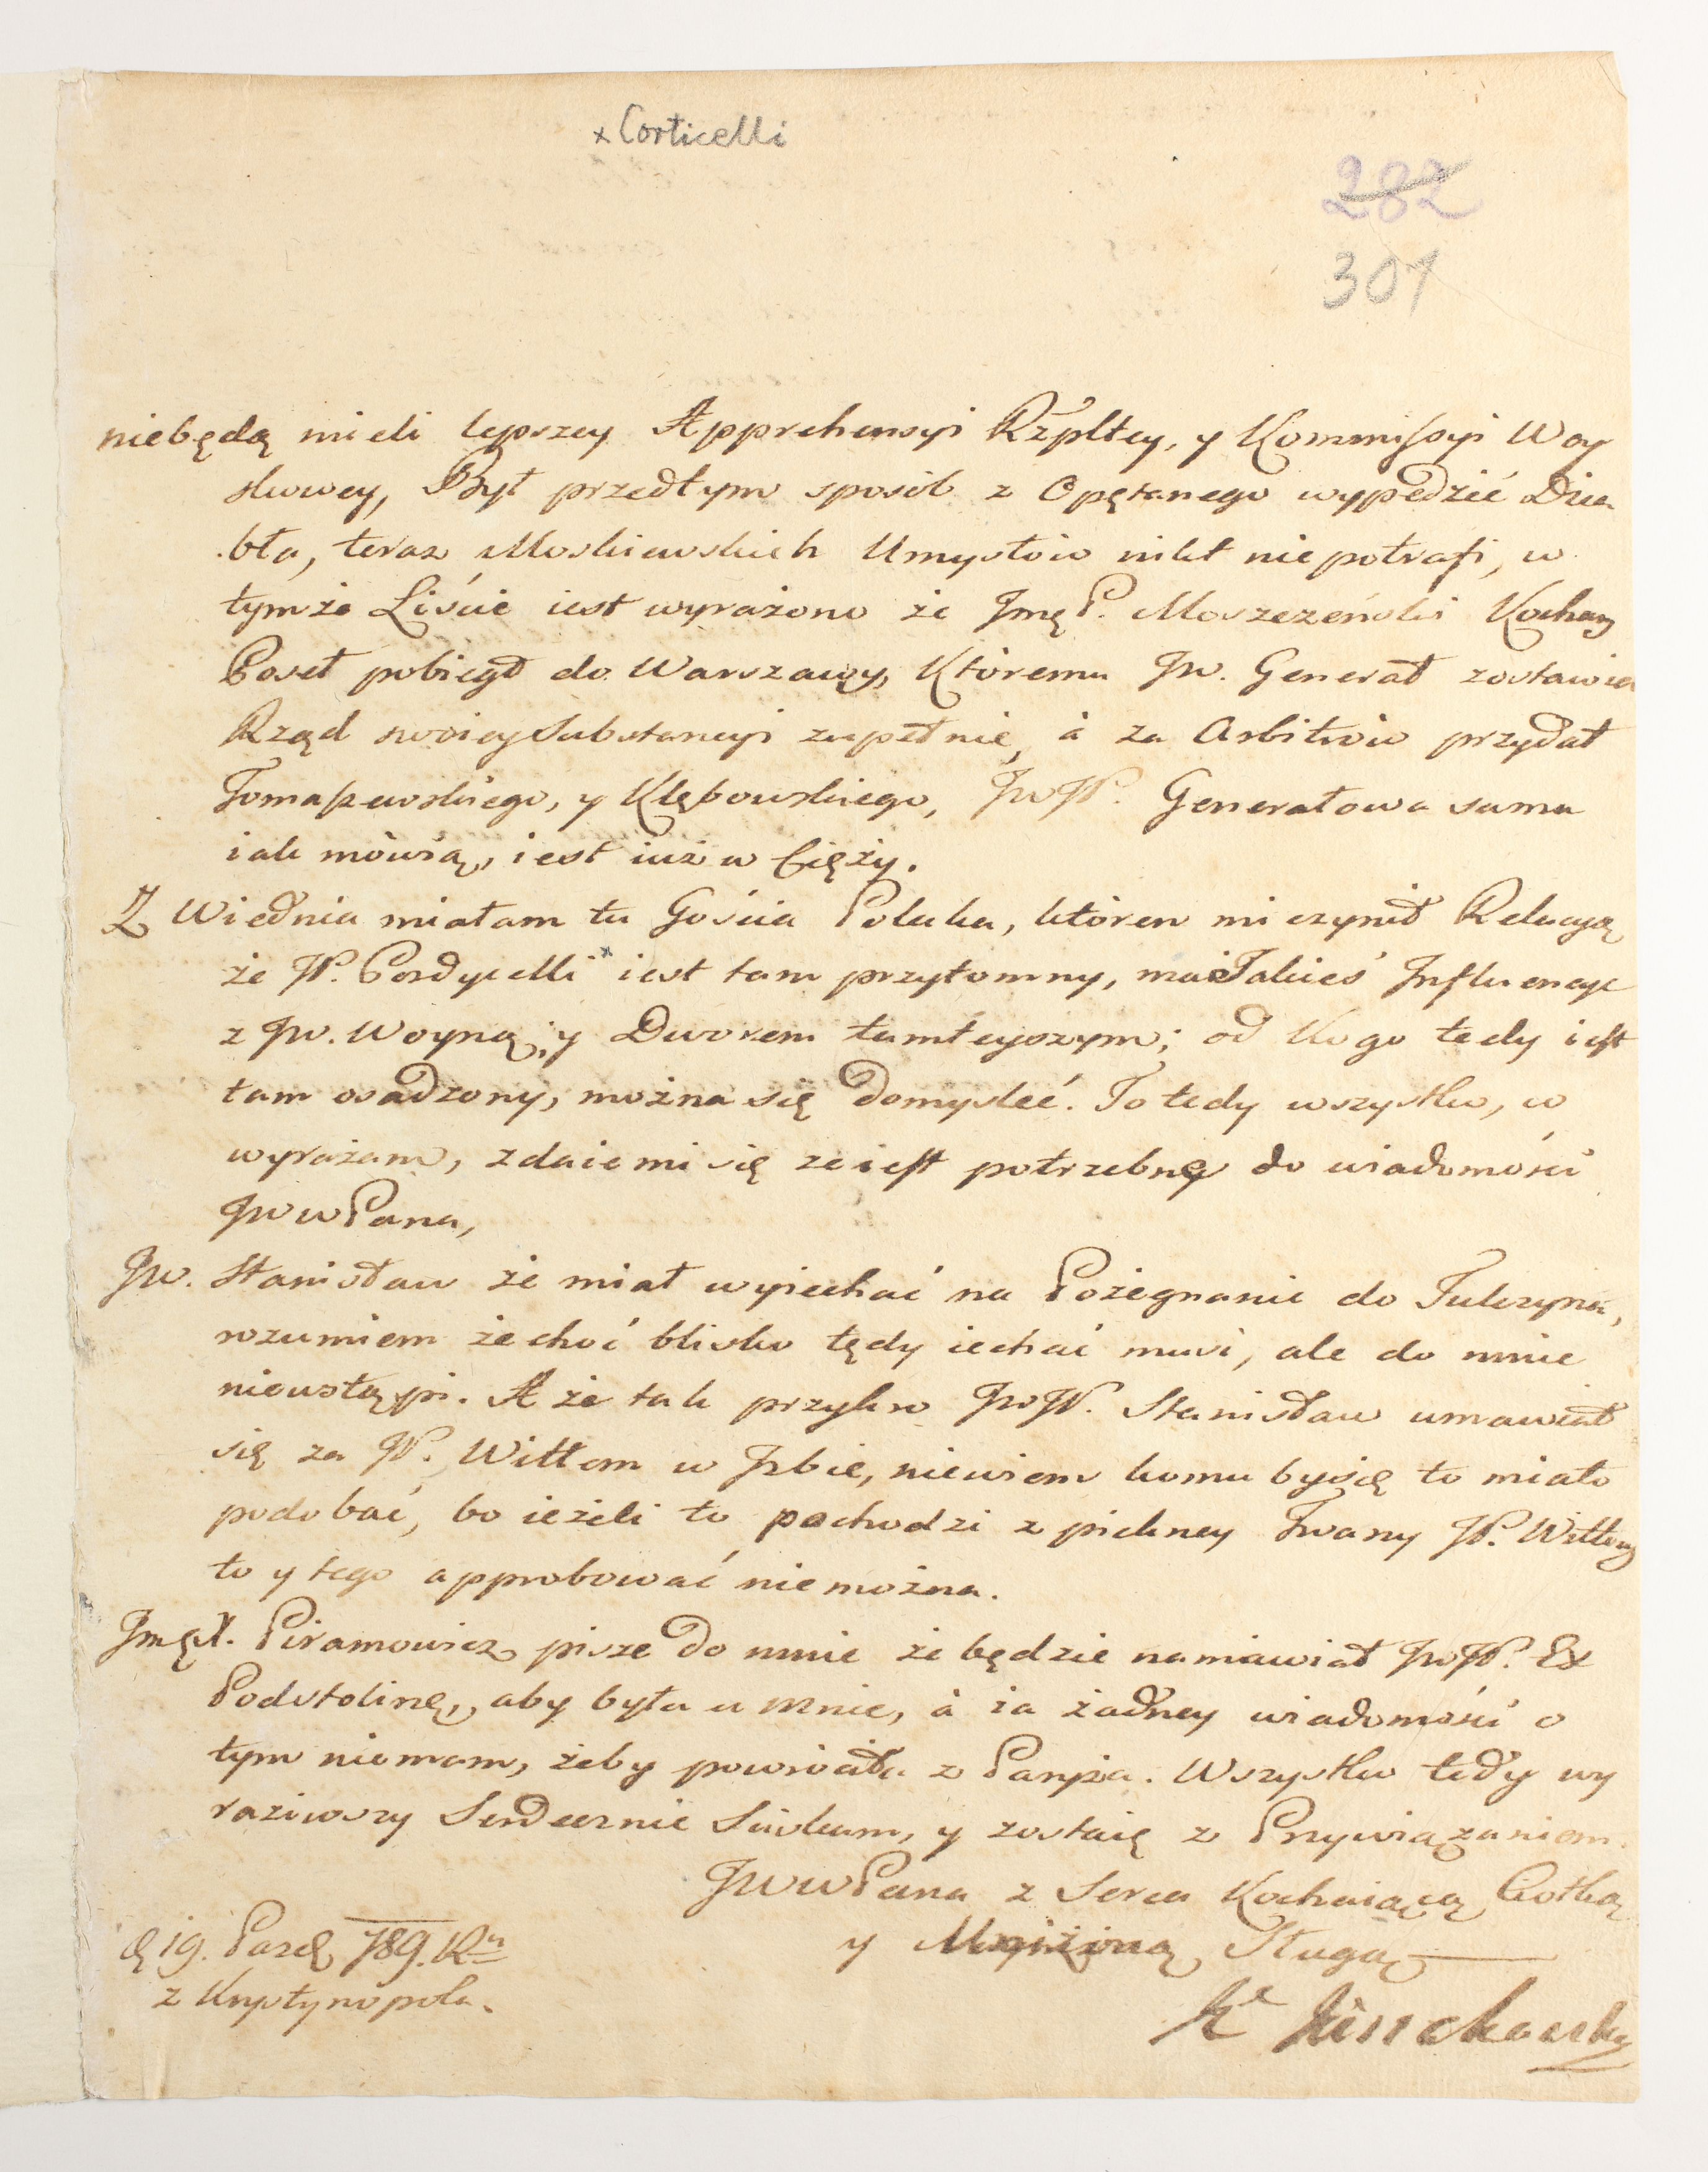 x Corticelli
282
301
niebędą mieli lepszey Apprehensyi Rzpltey, y Kommissyi Woy
skowey, Był przedtym sposób z Opętanego wypędzić Dia
bła, teraz Moskiewskich Umysłów nikt niepotrafi, w
tymże Liście iest wyrażono że Jmę P. Moszczeński Kochany
Poseł pobiegł do Warszawy, Któremu Jw. Generał zostawił
Rząd swoiey Substancyi zupełnie, à za Arbitrów przydał
Tomaszewskiego, y Klębowskiego, JwJP. Generałowa sama
iak mówią, iest iuż w Cięży.
Z Wiednia miałam tu Gościa Polaka, któren mi czynił Relacyą
że JP. Pordycelli x iest tam przytomny, ma Jakieś Influencye
z Jw. Woyną, y Dworem tamteyszym; od Kogo tedy iest
tam osadzony, można się domyśleć. To tedy wszystko, co
wyrażam, zdaie mi się że iest potrzebne do wiadomości
JWWPana,
Jw. Stanisław że miał wyiechać na Pożegnanie do Tulczyna,
rozumiem że choć blisko tędy iechać musi, ale do mnie
nieustąpi. A że tak przykro JwJP. Stanisław umawiał
się za JP. Wittem w Izbie, niewiem komu by się to miało
podobać, bo ieżeli to pochodzi z piekney Twarzy JP. Wittowy
to y tego approbować nie można.
JmęX. Piramowicz pisze do mnie że będzie namawiał JwJP. Ex
Podstolinę, aby była u mnie, à ia żadney wiadomości o
tym niemam, żeby powróciła z Paryża. Wszystko tedy wy
raziwszy Serdecznie Sciskam, y zostaię z Przywiązaniem
JWWPana z Serca Kochaiącą Ciotką
y Uniżoną Sługą
19. Paźd. 789. Ru
z Krystynopola.